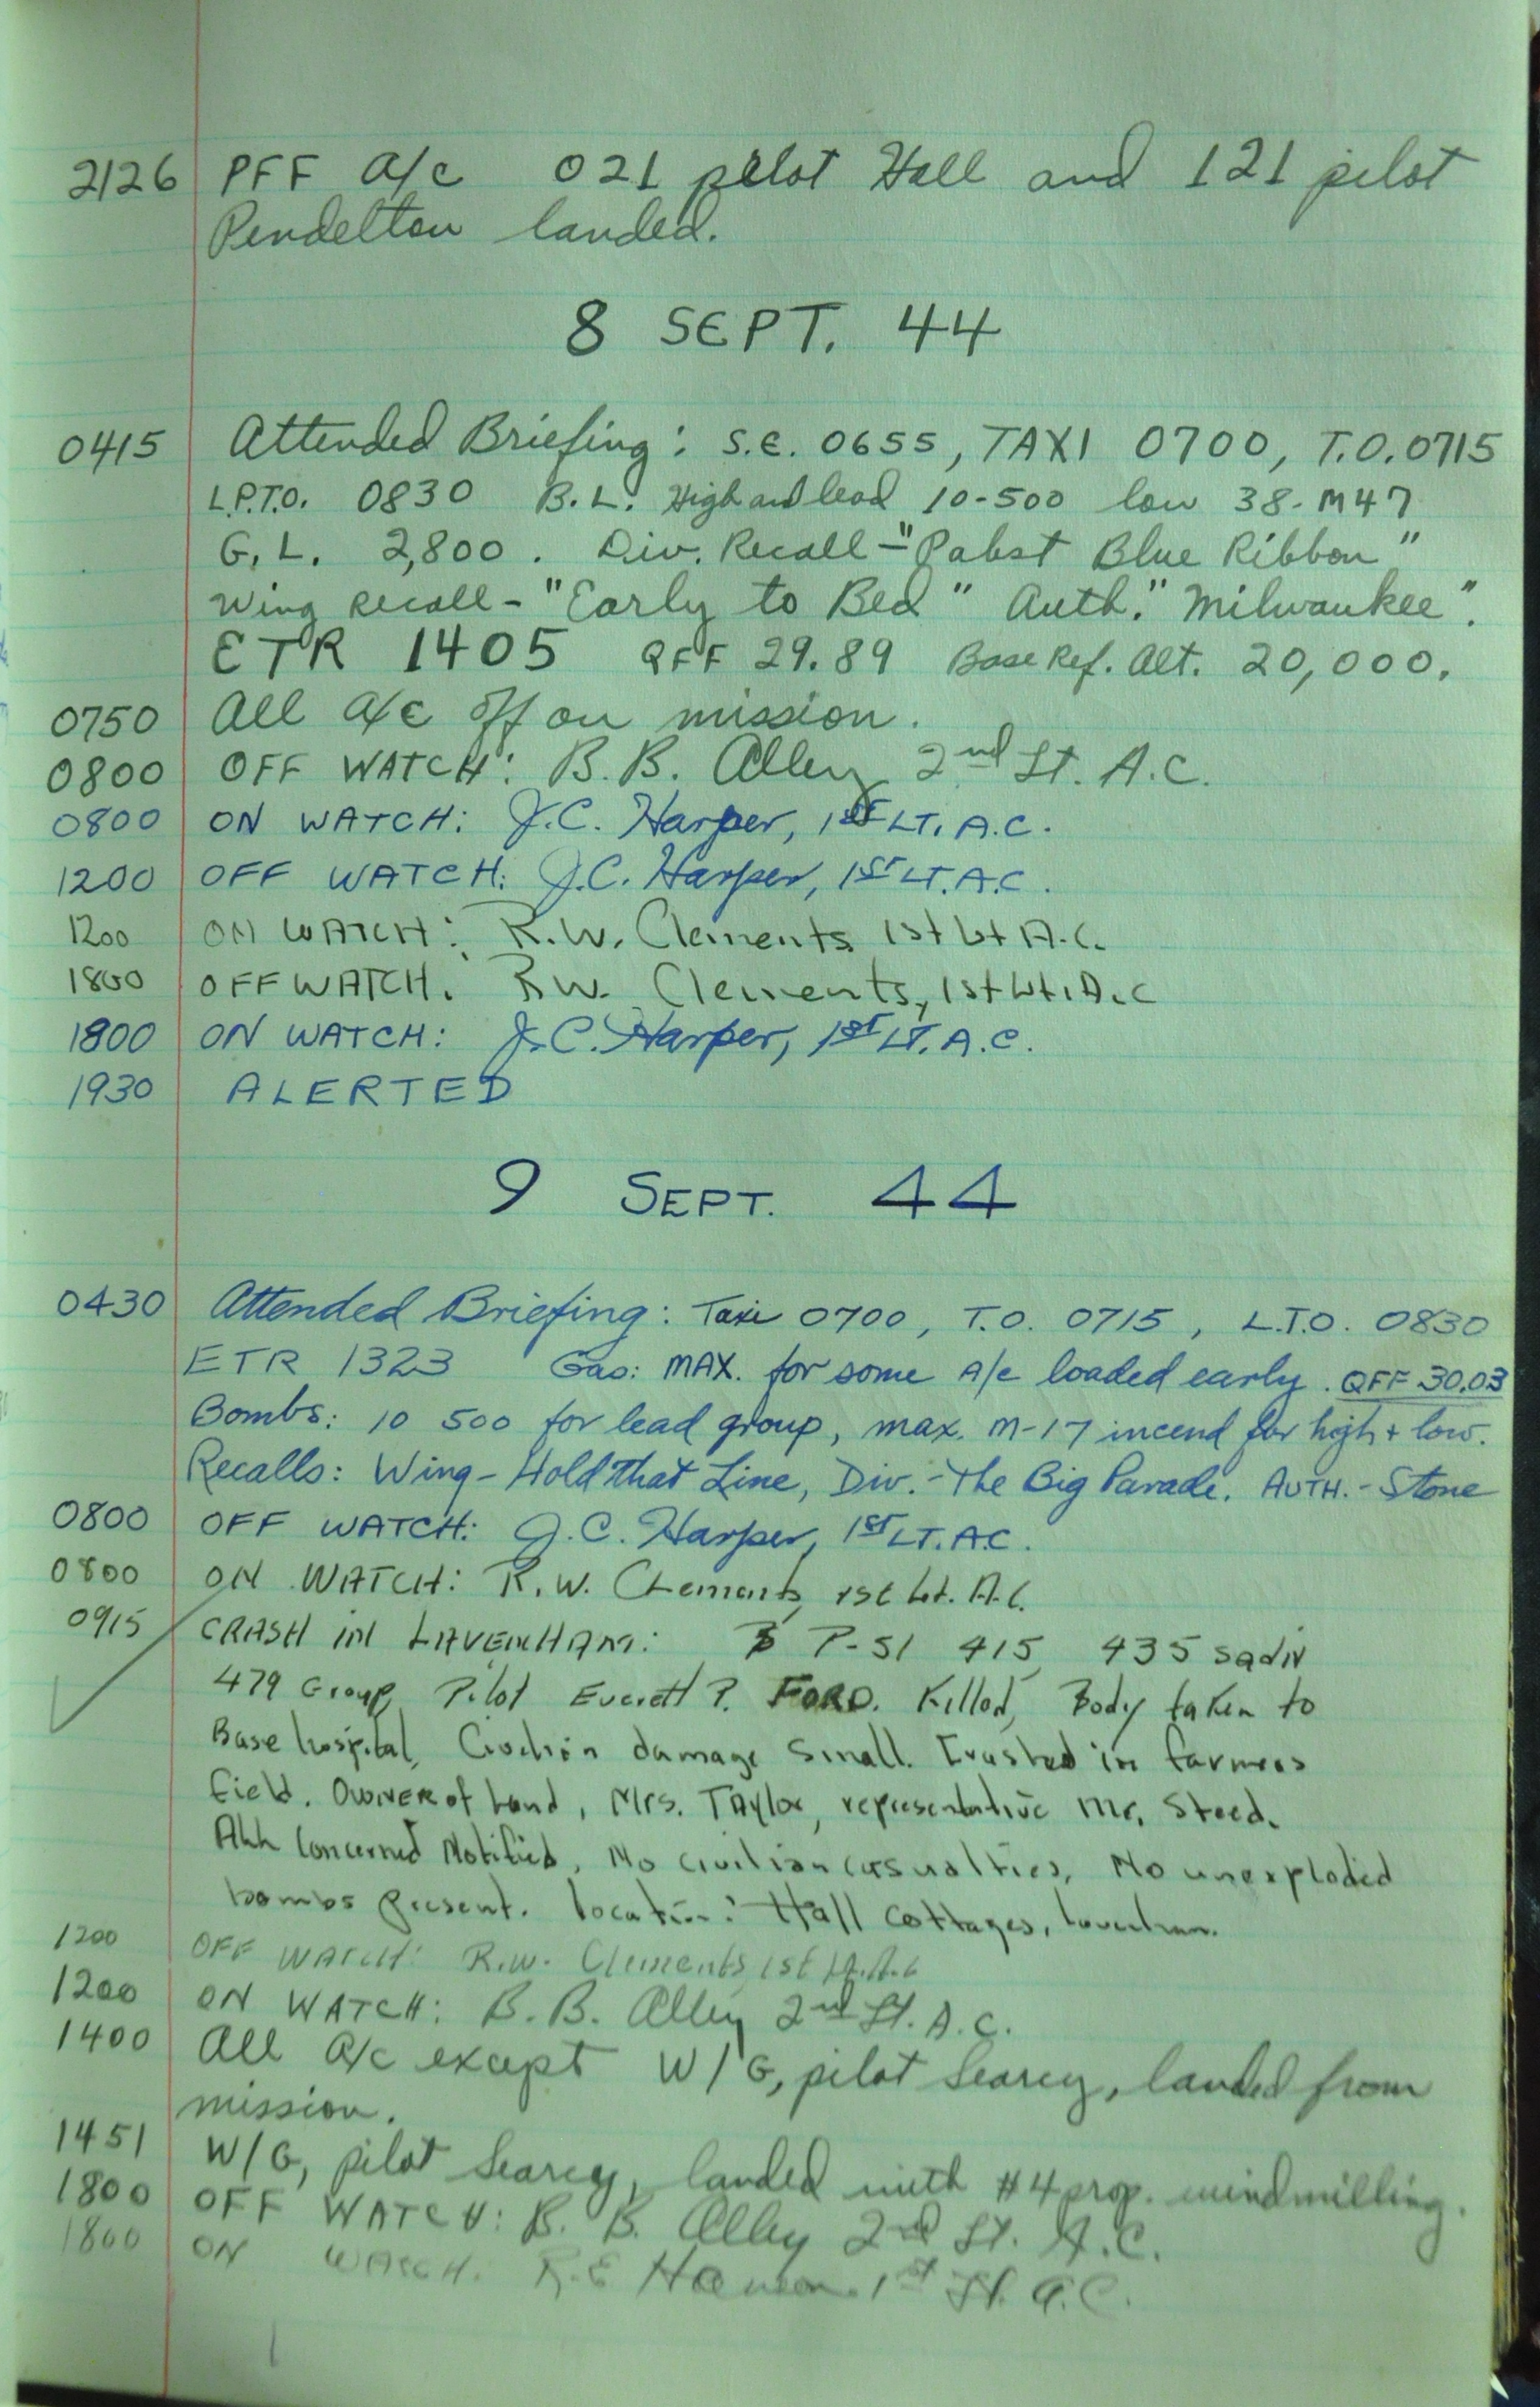 2126 PFF a/c 021 pilot Hall and 121 pilot
Pendelton landed.
8 SEPT. 44
0415 Attended Briefing: S.E. 0655, TAXI 0700, T.O. 0715
L.P.T.O. 0830 B.L. High and lead 10-500 low 38-M47
G.L. 2,800. Div. Recall-"Pabst Blue Ribbon"
Wing Recall-"Early to Bed" Auth. "Milwaukee".
ETR 1405 QFF 29.89 Base Ref. Alt. 20,000.
0750 All a/c off on mission.
0800 OFF WATCH: B.B. Alley 2nd Lt. A.C.
0800 ON WATCH: J.C. Harper, 1ST LT. A.C.
1200 OFF WATCH: J.C. Harper, 1ST LT. A.C.
1200 ON WATCH: R.W. Clements 1st Lt A.C.
1800 OFF WATCH: R.W. Clements, 1st Lt. A.C
1800 ON WATCH: J.C. Harper, 1ST LT. A.C.
1930 ALERTED
9 SEPT. 44
0430 Attended Briefing: Taxi 0700, T.O. 0715, L.T.O. 0830
ETR 1323 Gas: MAX. for some A/c loaded early. QFF 30.03
Bombs: 10 500 for lead group, max. M-17 incend for high + low.
Recalls: Wing-Hold that Line, Div.-The Big Parade. AUTH.-Stone
0800 OFF WATCH: J.C. Harper, 1ST LT. A.C.
0800 ON WATCH: R.W. Clements, 1st Lt. A.C.
0915 CRASH IN LAVENHAM: P-51 415, 435 sqdN
479 Group, Pilot Everett P. FORD. Killed, Body taken to
Base hospital, Civilian damage small. Crashed in farmers
field. OWNER of Land, Mrs. Taylor, representative Mr. Steed.
All Concerned Notified, No civilian casualties, No unexploded
bombs present. location: Hall cottages, Lavenham.
1200 OFF WATCH: R.W. Clements 1st Lt. A.C
1200 ON WATCH: B.B. Alley 2nd Lt. A.C.
1400 All a/c except W/G, pilot Searcy, landed from
mission.
1451 W/G, pilot Searcy, landed with #4 prop. windmilling.
1800 OFF WATCH: B.B. Alley 2nd Lt. A.C.
1800 ON WATCH. R.E 1st Lt. A.C.